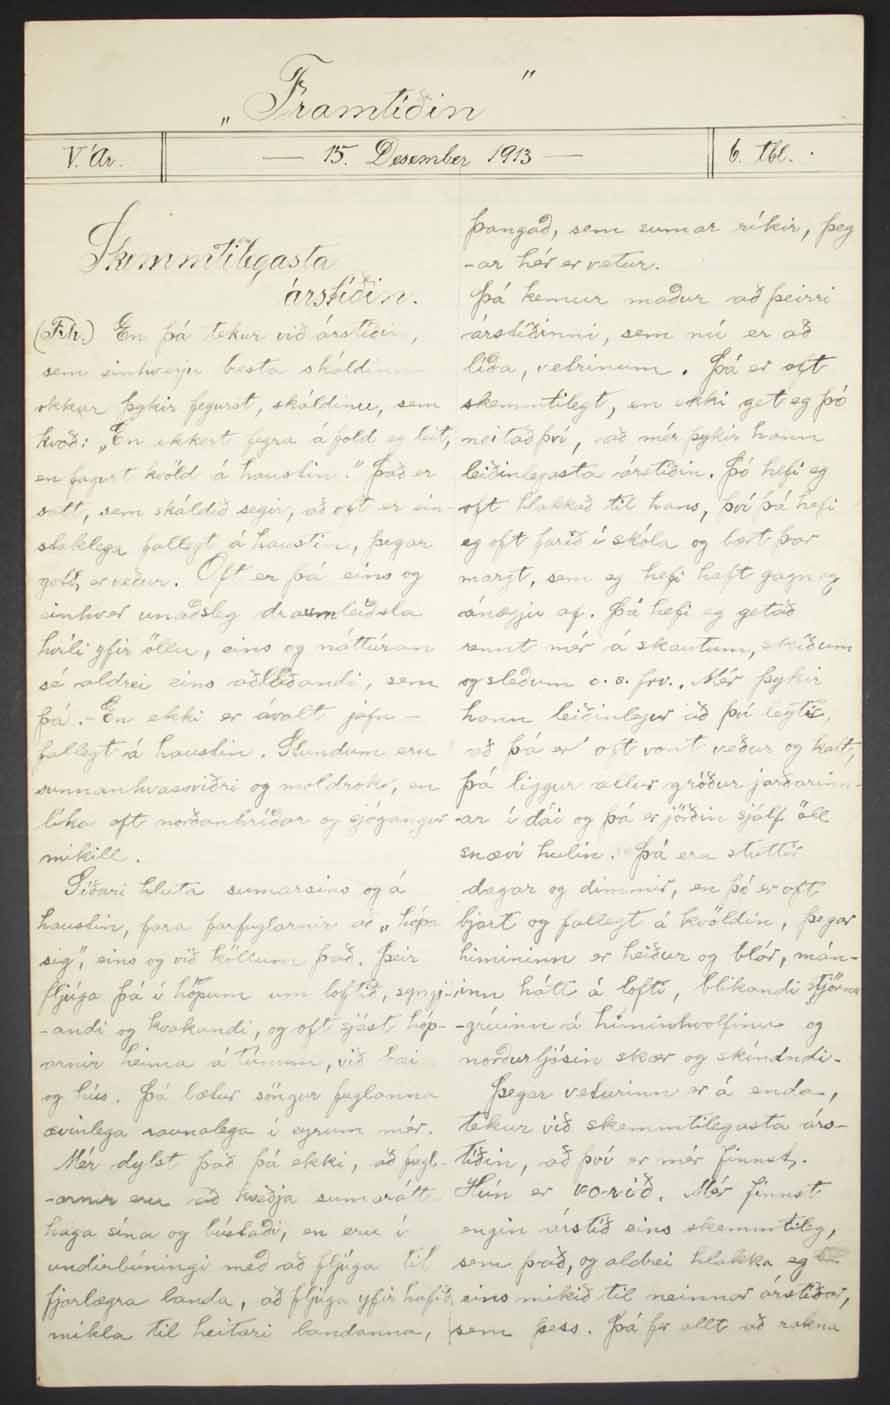 „Framtíðin"
V. Ár.
— 15. Desember 1913 —
6. tbl.
Skemmtilegasta
árstíðin.
(Frh.) En þá tekur við árstíðin,
sem einhverju besta skáldinu
okkar þykir fegurst, skáldinu, sem
kvað: „En ekkert fegra á fold eg leit,
en fagurt kvöld á haustin." Það er
satt, sem skáldið segir, að oft er ein-
staklega fallegt á haustin, þegar
gott er veður. Oft er þá eins og
einhver unaðsleg draumleiðsla
hvíli yfir öllu, eins og náttúran
sé aldrei eins aðlaðandi, sem
þá. - En ekki er ávalt jafn -
fallegt á haustin. Stundum eru
sunnanhvassviðri og moldrok, en
líka oft norðanhríðar og sjógangur
mikill.
Síðari hluta sumarsins og á
haustin, fara farfuglarnir að „hópa
sig", eins og við köllum það. Þeir
fljúga þá í hópum um loftið, syngj-
-andi og kvakandi, og oft sjást hóp-
arnir heima á túnum, við bæi
og hús. Þá lætur söngur fuglanna
ævinlega raunalega í eyrum mér.
Mér dylst það þá ekki, að fugl-
-arnir eru að kveðja sumarátt
haga sína og bústaði, en eru í
undirbúningi með að fljúga til
fjarlægra landa, að fljúga yfir hafið
mikla til heitari landanna,
þangað, sem sumar ríkir, þeg
-ar hér er vetur.
Þá kemur maður að þeirri
árstíðinni, sem nú er að
líða, vetrinum. Þá er oft
skemmtilegt, en ekki get eg þó
neitað því, að mér þykir hann
leiðinlegasta árstíðin. Þó hefi eg
oft hlakkað til hans, því þá hefi
eg oft farið í skóla og lært þar
margt, sem eg hefi haft gagn og
ánægju af. Þá hefi eg getað
rennt mér á skautum, skíðum
og sleðum o. s. frv. Mér þykir
hann leiðinlegur að því leyti,
að þá er oft vont veður og kalt,
þá liggur allur gróður jarðarinn-
-ar í dái og þá er jörðin sjálf öll
snævi hulin. Þá eru stuttir
dagar og dimmir, en þó er oft
bjart og fallegt á kvöldin, þegar
himininn er heiður og blár, mán-
inn hátt á lofti, blikandi stjörnu
-grúinn á himinhvolfinu og
norðurljósin skær og skínandi-
Þegar veturinn er á enda,
tekur við skemmtilegasta árs-
tíðin, að því er mér finnst.
Hún er vorið. Mér finnst
engin árstíð eins skemmtileg,
sem það, og aldrei hlakka eg
eins mikið til neinnar árstíðar,
sem þess. Þá fer allt að rakna